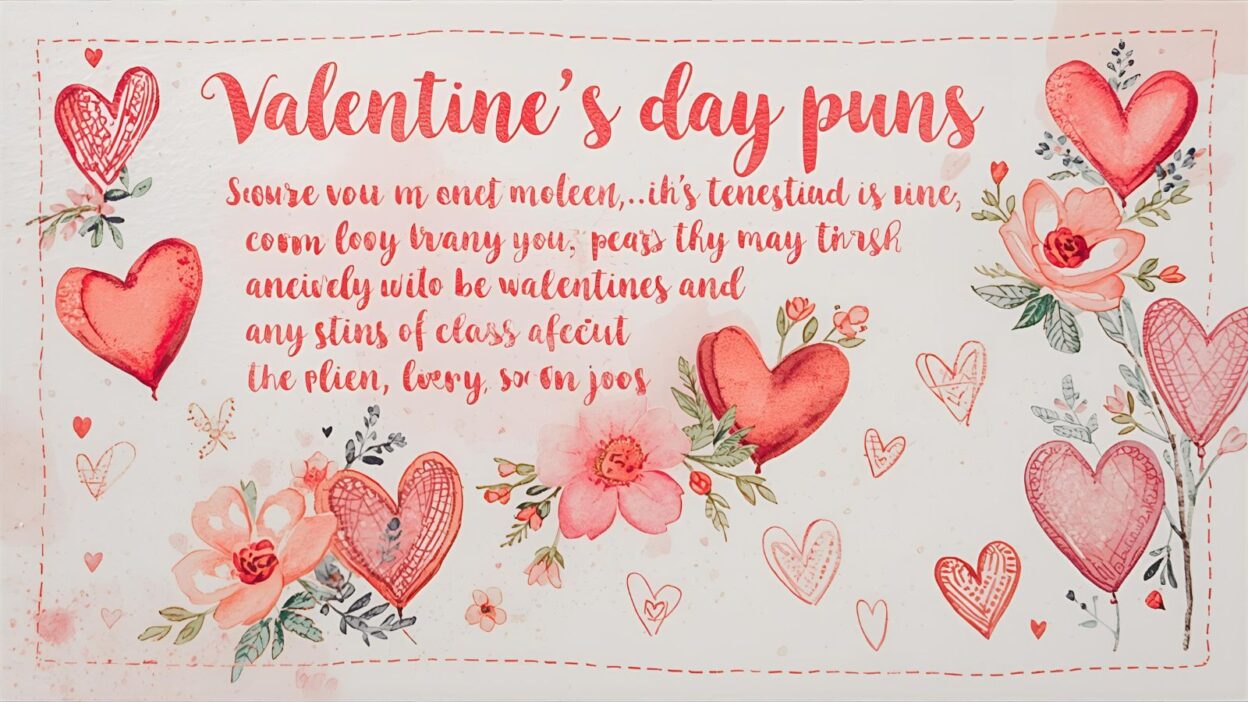 Valentine's day puns
Scouze vou m onet moleen,..ih's tenestiud is une,
coom looy brany you, pears thy may thrsh
ancively wito be walentines and
any stins of class afecut
the plien, lvery, so on joos